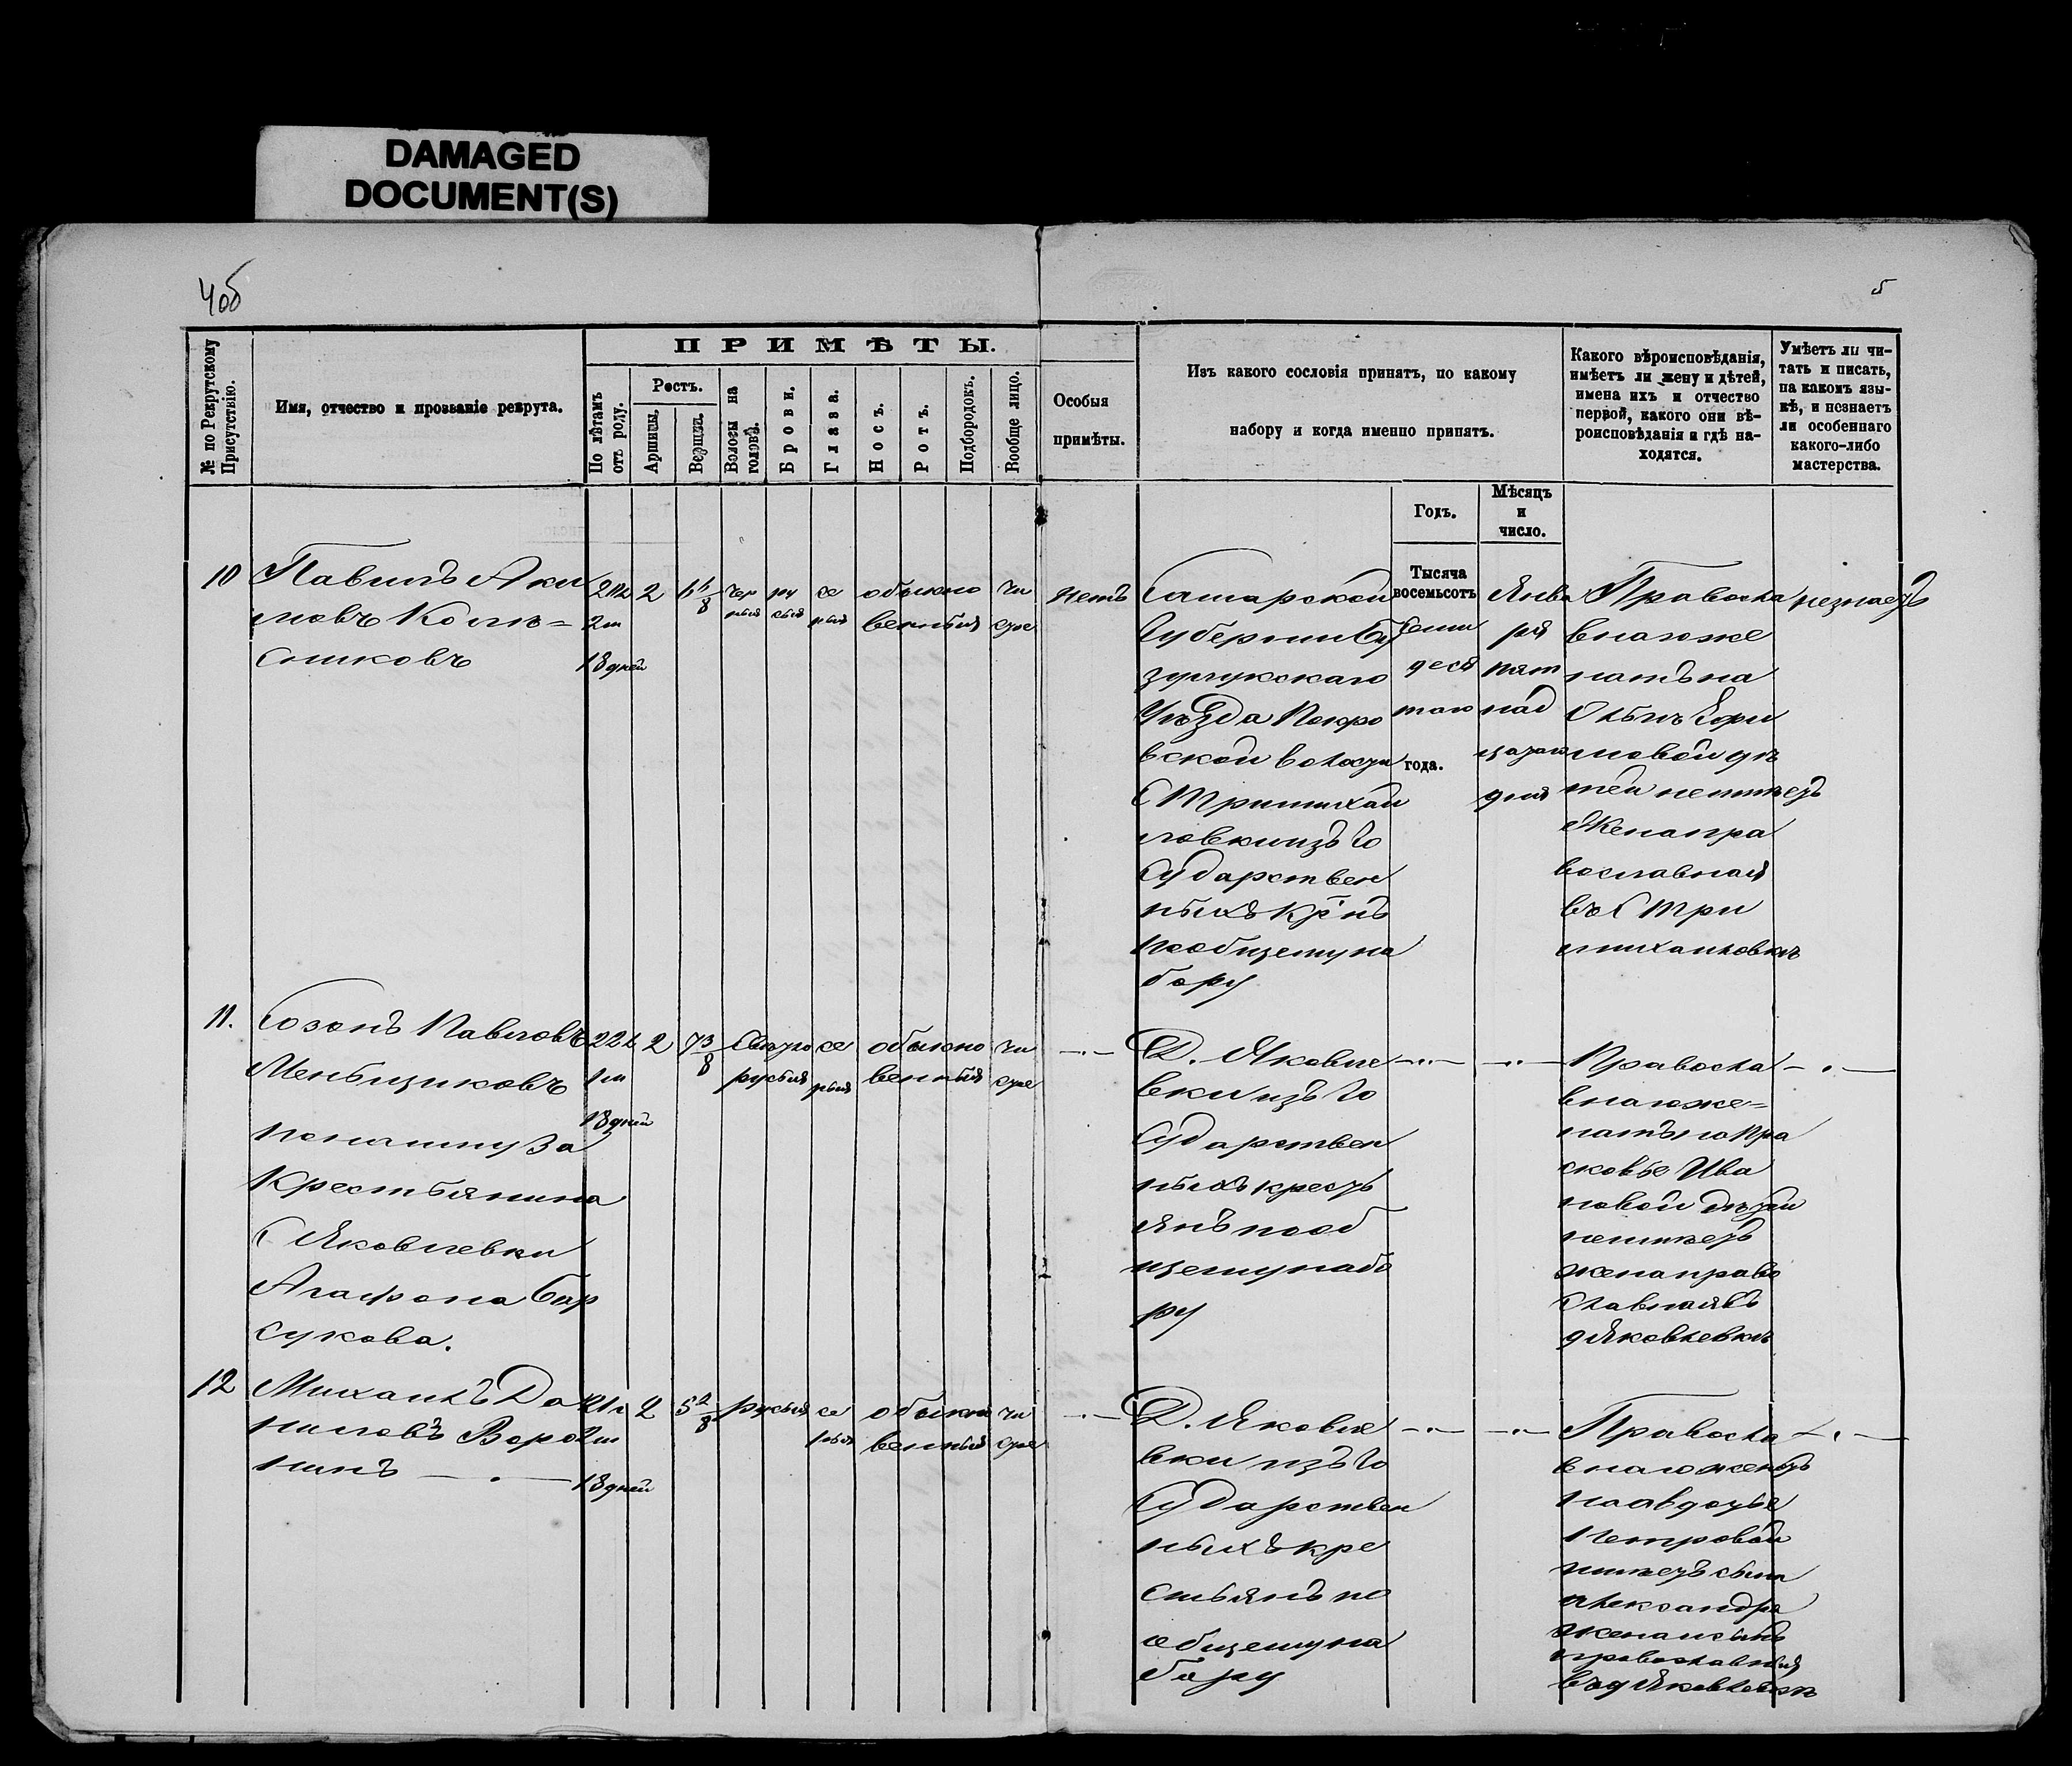 DAMAGED
DOCUMENT(S)
4об
5
№ по Рекрутскому
Присутствію.
Имя, отчество и прозваніе рекрута.
ПРИМѢТЫ.
По лѣтамъ
отъ роду.
Ростъ.
Аршины.
Вершки.
Волосы на
головѣ.
Брови.
Глаза.
Носъ.
Ротъ.
Подбородокъ.
Вообще лицо.
Особыя
примѣты.
Изъ какого сословія принятъ, по какому
набору и когда именно принятъ.
Какого вѣроисповѣданія,
имѣетъ ли жену и дѣтей,
имена ихъ и отчество
первой, какого они вѣ-
роисповѣданія и гдѣ на-
ходятся.
Умѣетъ ли чи-
тать и писать,
на какомъ язы-
кѣ, и незнаетъ
ли особеннаго
какого-либо
мастерства.
Годъ.
Мѣсяцъ
и
число.
10
Павилъ Аки
мовъ Колѣ=
сниковъ
2м
18 дней
2
чер
ные
ру
сые
се
рые
обыкно
венные
чи
стое
нетъ
Самарской
Губернiи Бу
зулукскаго
Уѣзда Покро
вской волости
С Тримихай
ловки изъ Го
сударствен
ныхъ Кр нъ
по общему на
бору
Тысяча
восемьсотъ
семи
деся
таго
года.
Янва
ря
пят
над
цатаго
дня
Правосла
внаго же
натъ на
мовой дѣ
тей неимѣетъ
Жена пра
вославная
въ С Три
михаиловкѣ
незнаетъ
11.
Созонъ Павловъ
Меньщиковъ
по найму за
Крестьянина
С Яковлевки
Агафона Бар
сукова.
1м
18 дней
2
7 3/8
Светло
русые
се
рые
обыкно
венные
чи
стое
Д. Яковле
вки изъ Го
сударствен
ныхъ кресть
янъ по об
щему набо
ру
Правосла
внаго же=
натъ на Пра
сковье Ива
новой дѣтей
неимѣетъ
жена право
славная въ
д Яковлевкѣ
12
Михаилъ Да
ниловъ Воро
нинъ
2м
18 дней
2
5 2/8
русые
се
рые
обыкно
венные
чи
стое
Д. Яковле
вки изъ Го
сударствен
ныхъ кре
стьянъ по
общему на
бору
Правосла
внаго женатъ
на авдотье
Петровой
имѣетъ сына
Александра
жена и сынъ
православные
въ д Яковлевкѣ